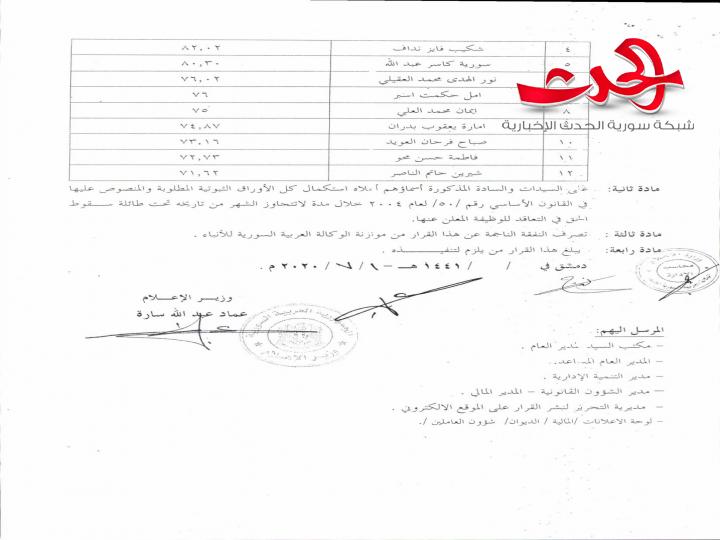 ٤ شكيب فايز نداف ٨٢,٠٢
٥ سورية كاسر عبد الله ٨٠,٣٠
نور الهدى محمد العقيلي ٧٦,٠٢
امل حكمت اسبر ٧٦
٨ ايمان محمد العلي ٧٥
امارة يعقوب بدران ٧٤,٨٧
١٠ صباح فرحان العويد ٧٣,١٦
١١ فاطمة حسن محو ٧٢,٧٣
١٢ شيرين حاتم الناصر ٧١,٦٢
الحدث
شبكة سورية الحدث الإخبارية
مادة ثانية: على السيدات والسادة المذكورة أسماؤهم أعلاه استكمال كل الأوراق الثبوتية المطلوبة والمنصوص عليها
في القانون الأساسي رقم /٥٠/ لعام ٢٠٠٤ خلال مدة لاتتجاوز الشهر من تاريخه تحت طائلة سقوط
الحق في التعاقد للوظيفة المعلن عنها.
مادة ثالثة : تصرف النفقة الناجمة عن هذا القرار من موازنة الوكالة العربية السورية للأنباء .
مادة رابعة: يبلغ هذا القرار من يلزم لتنفيذه .
دمشق في / / ١٤٤١ هـ - ١ / ٧ / ٢٠٢٠ م .
وزير الإعلام
عماد عبد الله سارة
المرسل اليهم:
– مكتب السيد المدير العام .
– المدير العام المساعد.
– مدير التنمية الإدارية .
– مدير الشؤون القانونية – المدير المالي .
– مديرية التحرير لنشر القرار على الموقع الالكتروني .
– لوحة الاعلانات /المالية / الديوان/ شؤون العاملين /.